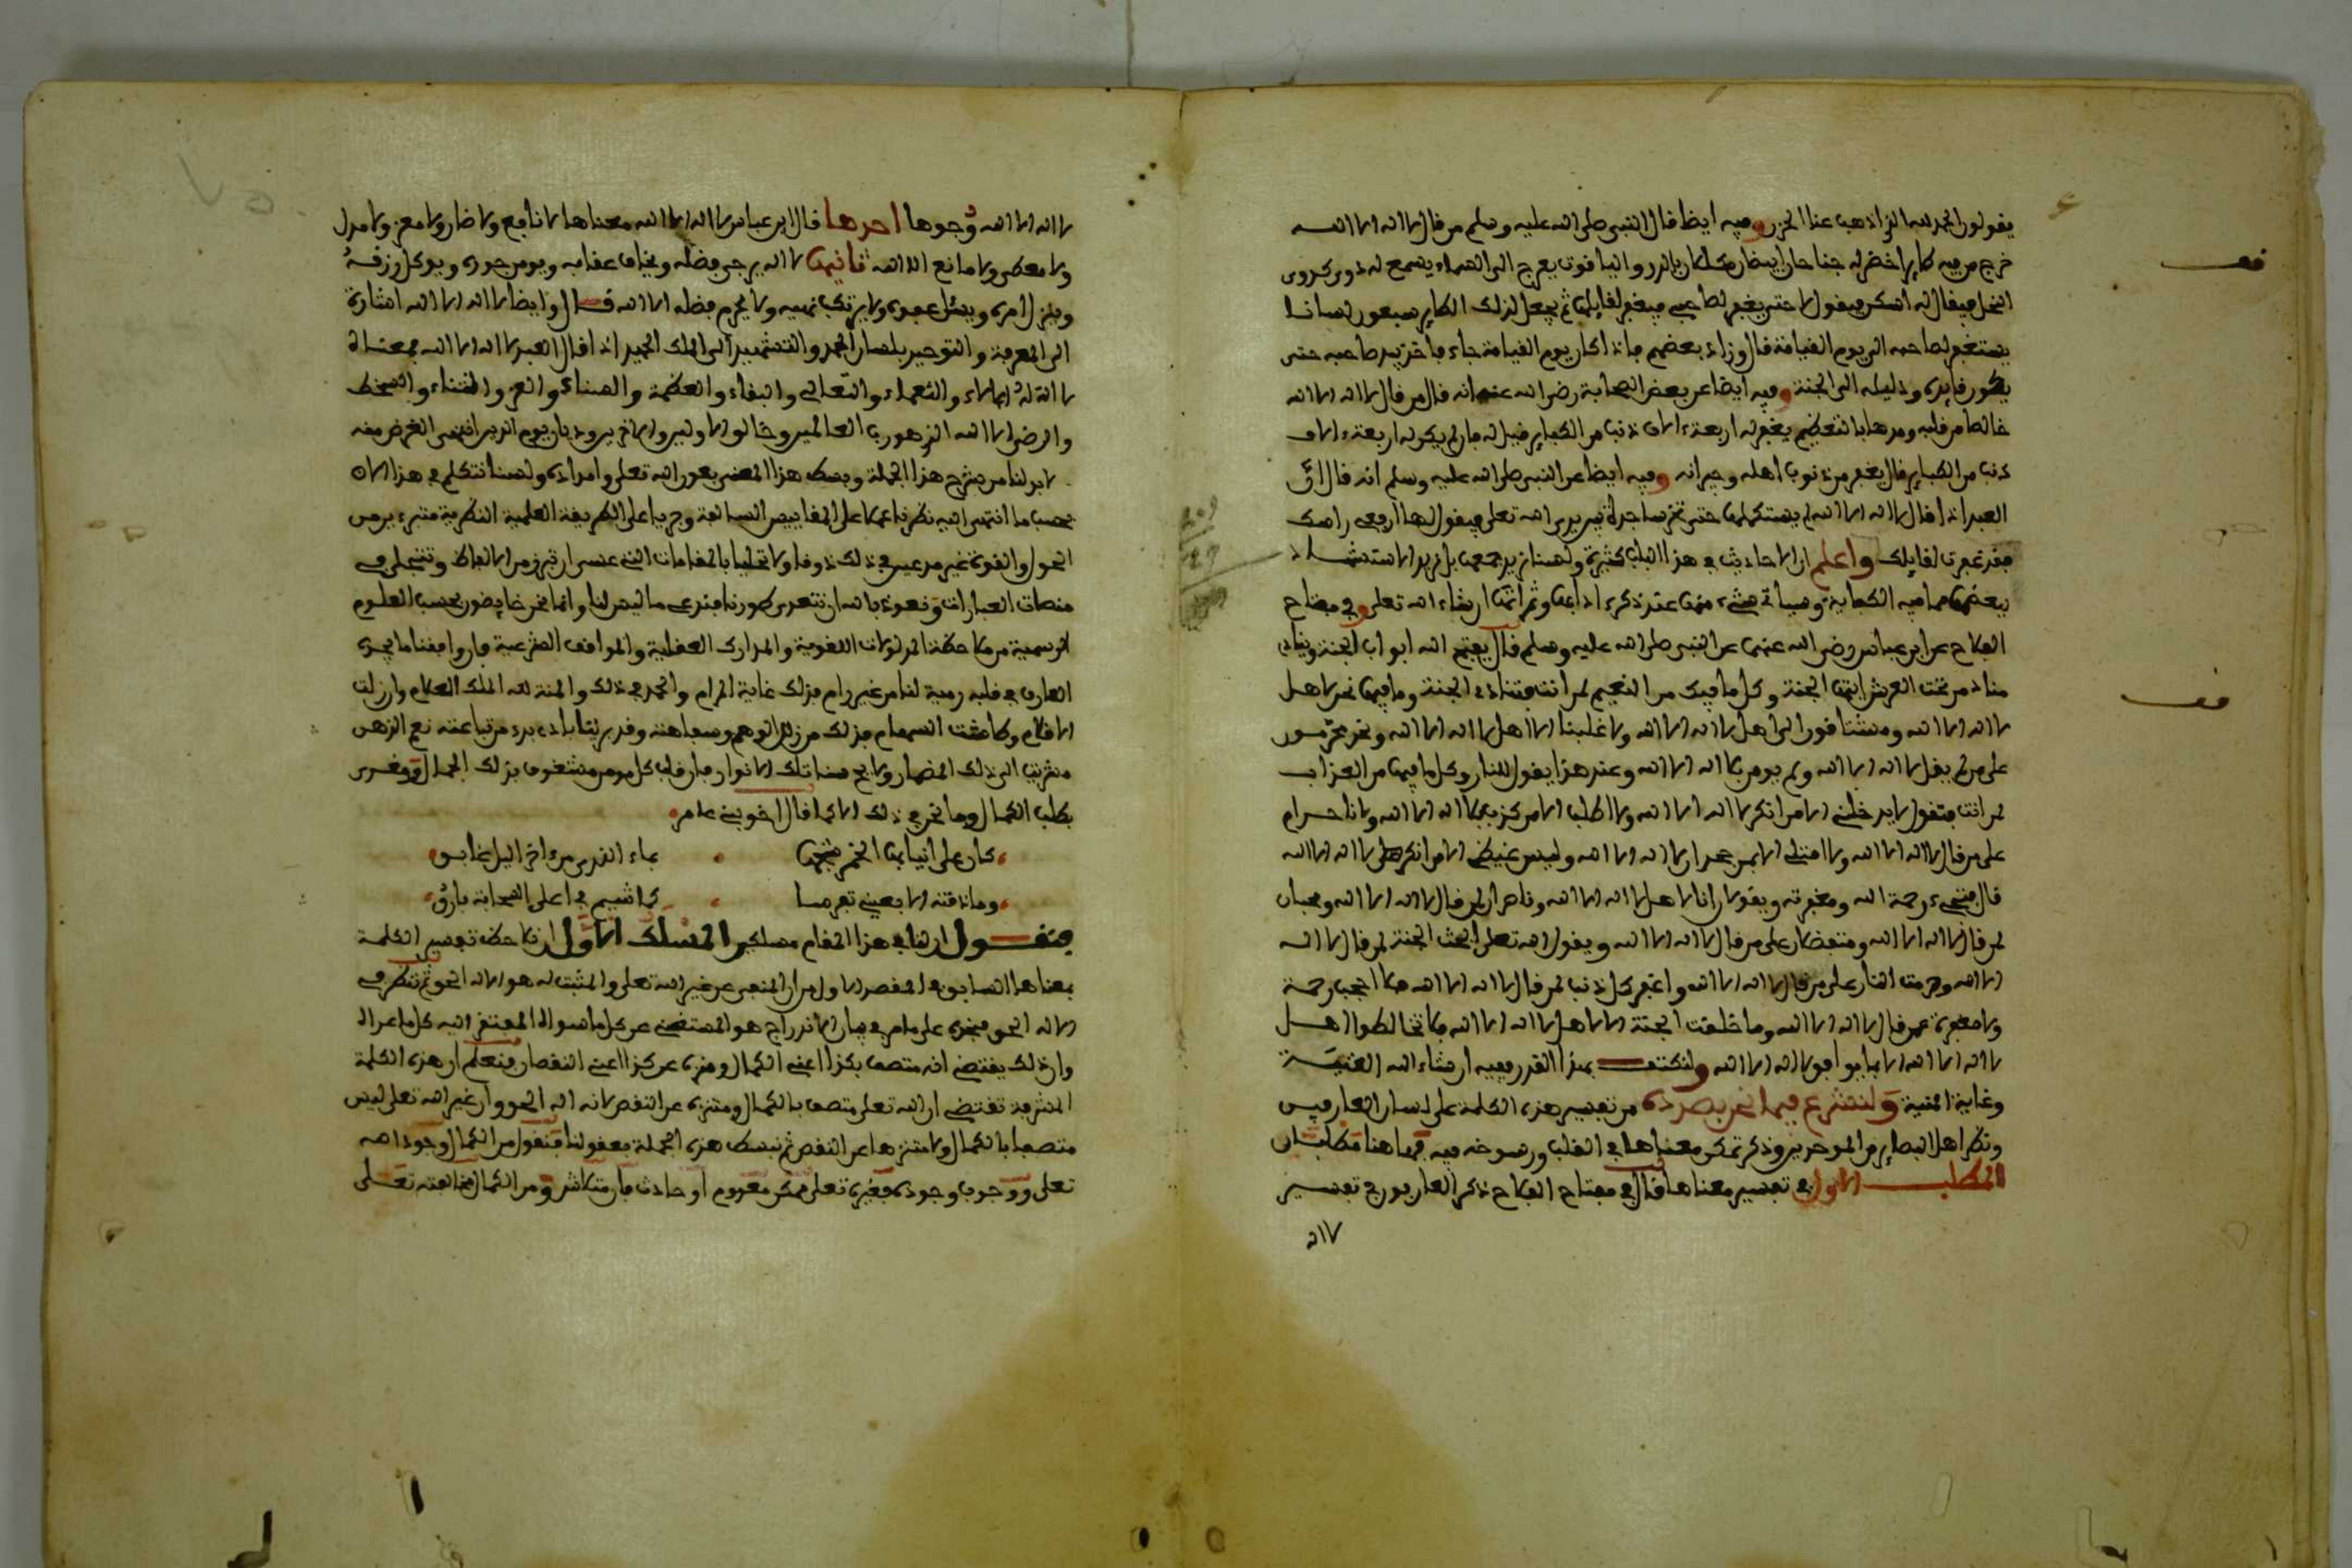 يقولون الحمد لله الذي اذهب عنا الحزن وفيه ايضا قال النبي صلى الله عليه وسلم من قال لا اله الا الله
خرج من فيه طاير اخضر له جناحان ابيضان مكللان بالدر والياقوت يعرج الى السماء يسمع له دوي كدوي
النحل فيقال له اسكن فيقول لا حتى يغفر لصاحبي فيغفر لقايلها ثم يجعل لذلك الطاير سبعون لسانا
يستغفر لصاحبه الى يوم القيامة قال وزاد بعضهم فاذا كان يوم القيامة جاء فاخذ بيد صاحبه حتى
يكون قايده ودليله الى الجنة وفيه ايضا عن بعض الصحابة رضي الله عنهم انه قال من قال لا اله الا الله
خالصا من قلبه ومدها بالتعظيم يغفر له اربعة ءالاف ذنب من الكباير قيل له فان لم يكن له اربعة ءالاف
ذنب من الكباير قال يغفر من ذنوب اهله وجيرانه وفيه ايضا عن النبي صلى الله عليه وسلم انه قال ان
العبد اذا قال لا اله الا الله لم يستكملها حتى تخر ساجدة بين يدي الله تعلى فيقول لها ارفعي راسك
فقد غفرت لقايلك واعلم ان الاحاديث في هذا الباب كثيرة ولسنا نريد جمعها بل نريد الاستشهاد
ببعضها مما فيه الكفاية وسياتي شيء منها عند ذكر ءادابها وثمراتها ان شاء الله تعلى وفي مفتاح
الفلاح عن ابن عباس رضي الله عنهما عن النبي صلى الله عليه وسلم قال يفتح الله ابواب الجنة وينادي
مناد من تحت العرش ايتها الجنة وكل ما فيك من النعيم لمن انت فتنادي الجنة وما فيها نحن لاهل
لا اله الا الله ومشتاقون الى اهل لا اله الا الله ولا غلبنا الا اهل لا اله الا الله ونحن محرمون
على من لم يقل لا اله الا الله ولم يومن بلا اله الا الله وعند هذا يقول للنار وكل ما فيها من العذاب
لمن انت فتقول لا يدخلني الا من انكر لا اله الا الله ولا اطلب الا من كذب بلا اله الا الله وانا حرام
على من قال لا اله الا الله ولا امتلي الا بمن جحد لا اله الا الله وليس غيظي الا من انكر على لا اله الا الله
قال فتجيء رحمة الله ومغفرته ويقولان انا لاهل لا اله الا الله وناصران لمن قال لا اله الا الله ومحبان
لمن قال لا اله الا الله ومتفضلان على من قال لا اله الا الله ويقول الله تعلى ابحت الجنة لمن قال لا اله
الا الله وحرمت النار على من قال لا اله الا الله واغفر كل ذنب لمن قال لا اله الا الله فلا احجب رحمة
ولا مغفرة عمن قال لا اله الا الله وما خلقت الجنة الا لاهل لا اله الا الله فلا تخالطوا اهل
لا اله الا الله الا بما يوافق لا اله الا الله ولنكتف بهذا القدر ففيه ان شاء الله الغنية
وغاية المنية ولنشرع فيما نحن بصدده من تفسير هذه الكلمة على لسان العارفين
ونظر اهل البصاير من الموحدين وذكر تمكن معناها في القلب ورسوخه فيه فهاهنا مطلبان
المطلب الاول في تفسير معناها قال في مفتاح الفلاح ذكر العارفون في تفسير
لا اله
قف
قف
لا اله الا الله وجوها احدها قال ابن عباس لا اله الا الله معناها لا نافع ولا ضار ولا معز ولا مذل
ولا معطي ولا مانع الا الله ثانيها لا اله يرجى فضله ويخاف عدله ويومن جوره ويوكل رزقه
ويترك امره ويسئل عفوه ولا يرتكب نهيه ولا يحرم فضله الا الله قال وايضا لا اله الا الله اشارة
الى المعرفة والتوحيد بلسان الحمد والتمجيد الى الملك المجيد اذا قال العبد لا اله الا الله فمعناه
لا اله له الالاء والنعماء والتعالي والبقاء والعظمة والسناء والعز والثناء والسخط
والرضى الا الله الذي هو رب العالمين وخالق الاولين والاخرين وديان يوم الدين انتهى الغرض منه
لابد لنا من شرح هذا الجملة وبسط هذا المعنى بعون الله تعلى وامداده ولسنا نتكلم في هذا الان
بحسب ما انتهى اليه نظرنا عملا على المقاييس السابقة وجريا على الطريقة العلمية النظرية متبرءين من
الحول والقوة غير مدعين في ذلك ذوقا ولا تحليا بالمقامات التي عسى ان تبرز من الالفاظ وتتجلى في
منصات العبارات ونعوذ بالله ان نتعدى طورنا فندعي ما ليس لنا وانما نحن خايضون بحسب العلوم
الرسمية من ملاحظة المدلولات اللغوية والمدارك العقلية والمواقف الشرعية فان وافقنا ما يجده
العارف في قلبه رمية لنا من غير رام فذلك غاية المرام والحمد في ذلك والمنة لله الملك العلام وان زلت
الاقدام وطاشت السهام فذلك من زلل الوهم وسفاهته وقد برئنا بادي بدء من تباعته نعم الذهن
منقرب الى ذلك المضمار ولايح من سنا تلك الانوار فان قلب كل مومن مشغوف بذلك الجمال ومغرى
بطلب الكمال وما نحن في ذلك الا كما قال اخو بني عامر
كان على انيابها الخمر شجها بماء الندى من ءاخر الليل غابق
وما ذقته الا بعيني تفرسا كما شيم في اعلى السحابة بارق
فنقول ان لنا في هذا المقام مسلكين المسلك الاول ان نلاحظ تفسير الكلمة
بمعناها السابق في المقصد الاول من ان المنفي عن غير الله تعلى والمثبت له هو الاله الحق ثم ننظر في
الاله الحق فنجده على ما مر في بيان الاندراج هو المستغني عن كل ما سواه المفتقر اليه كل ما عداه
وان ذلك يقتضي انه متصف بكذا اعني الكمال ومنزه عن كذا اعني النقصان فنعلم ان هذه الكلمة
المشرفة تقتضي ان الله تعلى متصف بالكمال ومتنزه عن النقص لانه اله الحق وان غير الله تعلى ليس
متصفا بالكمال ولا متنزها عن النقص ثم نبسط هذه الجملة بعقولنا فنقول من الكمال وجود الله
تعلى ووجوب وجوده فغيره تعلى ممكن معدوم او حادث فان متلاش ومن الكمال مخالفته تعلى